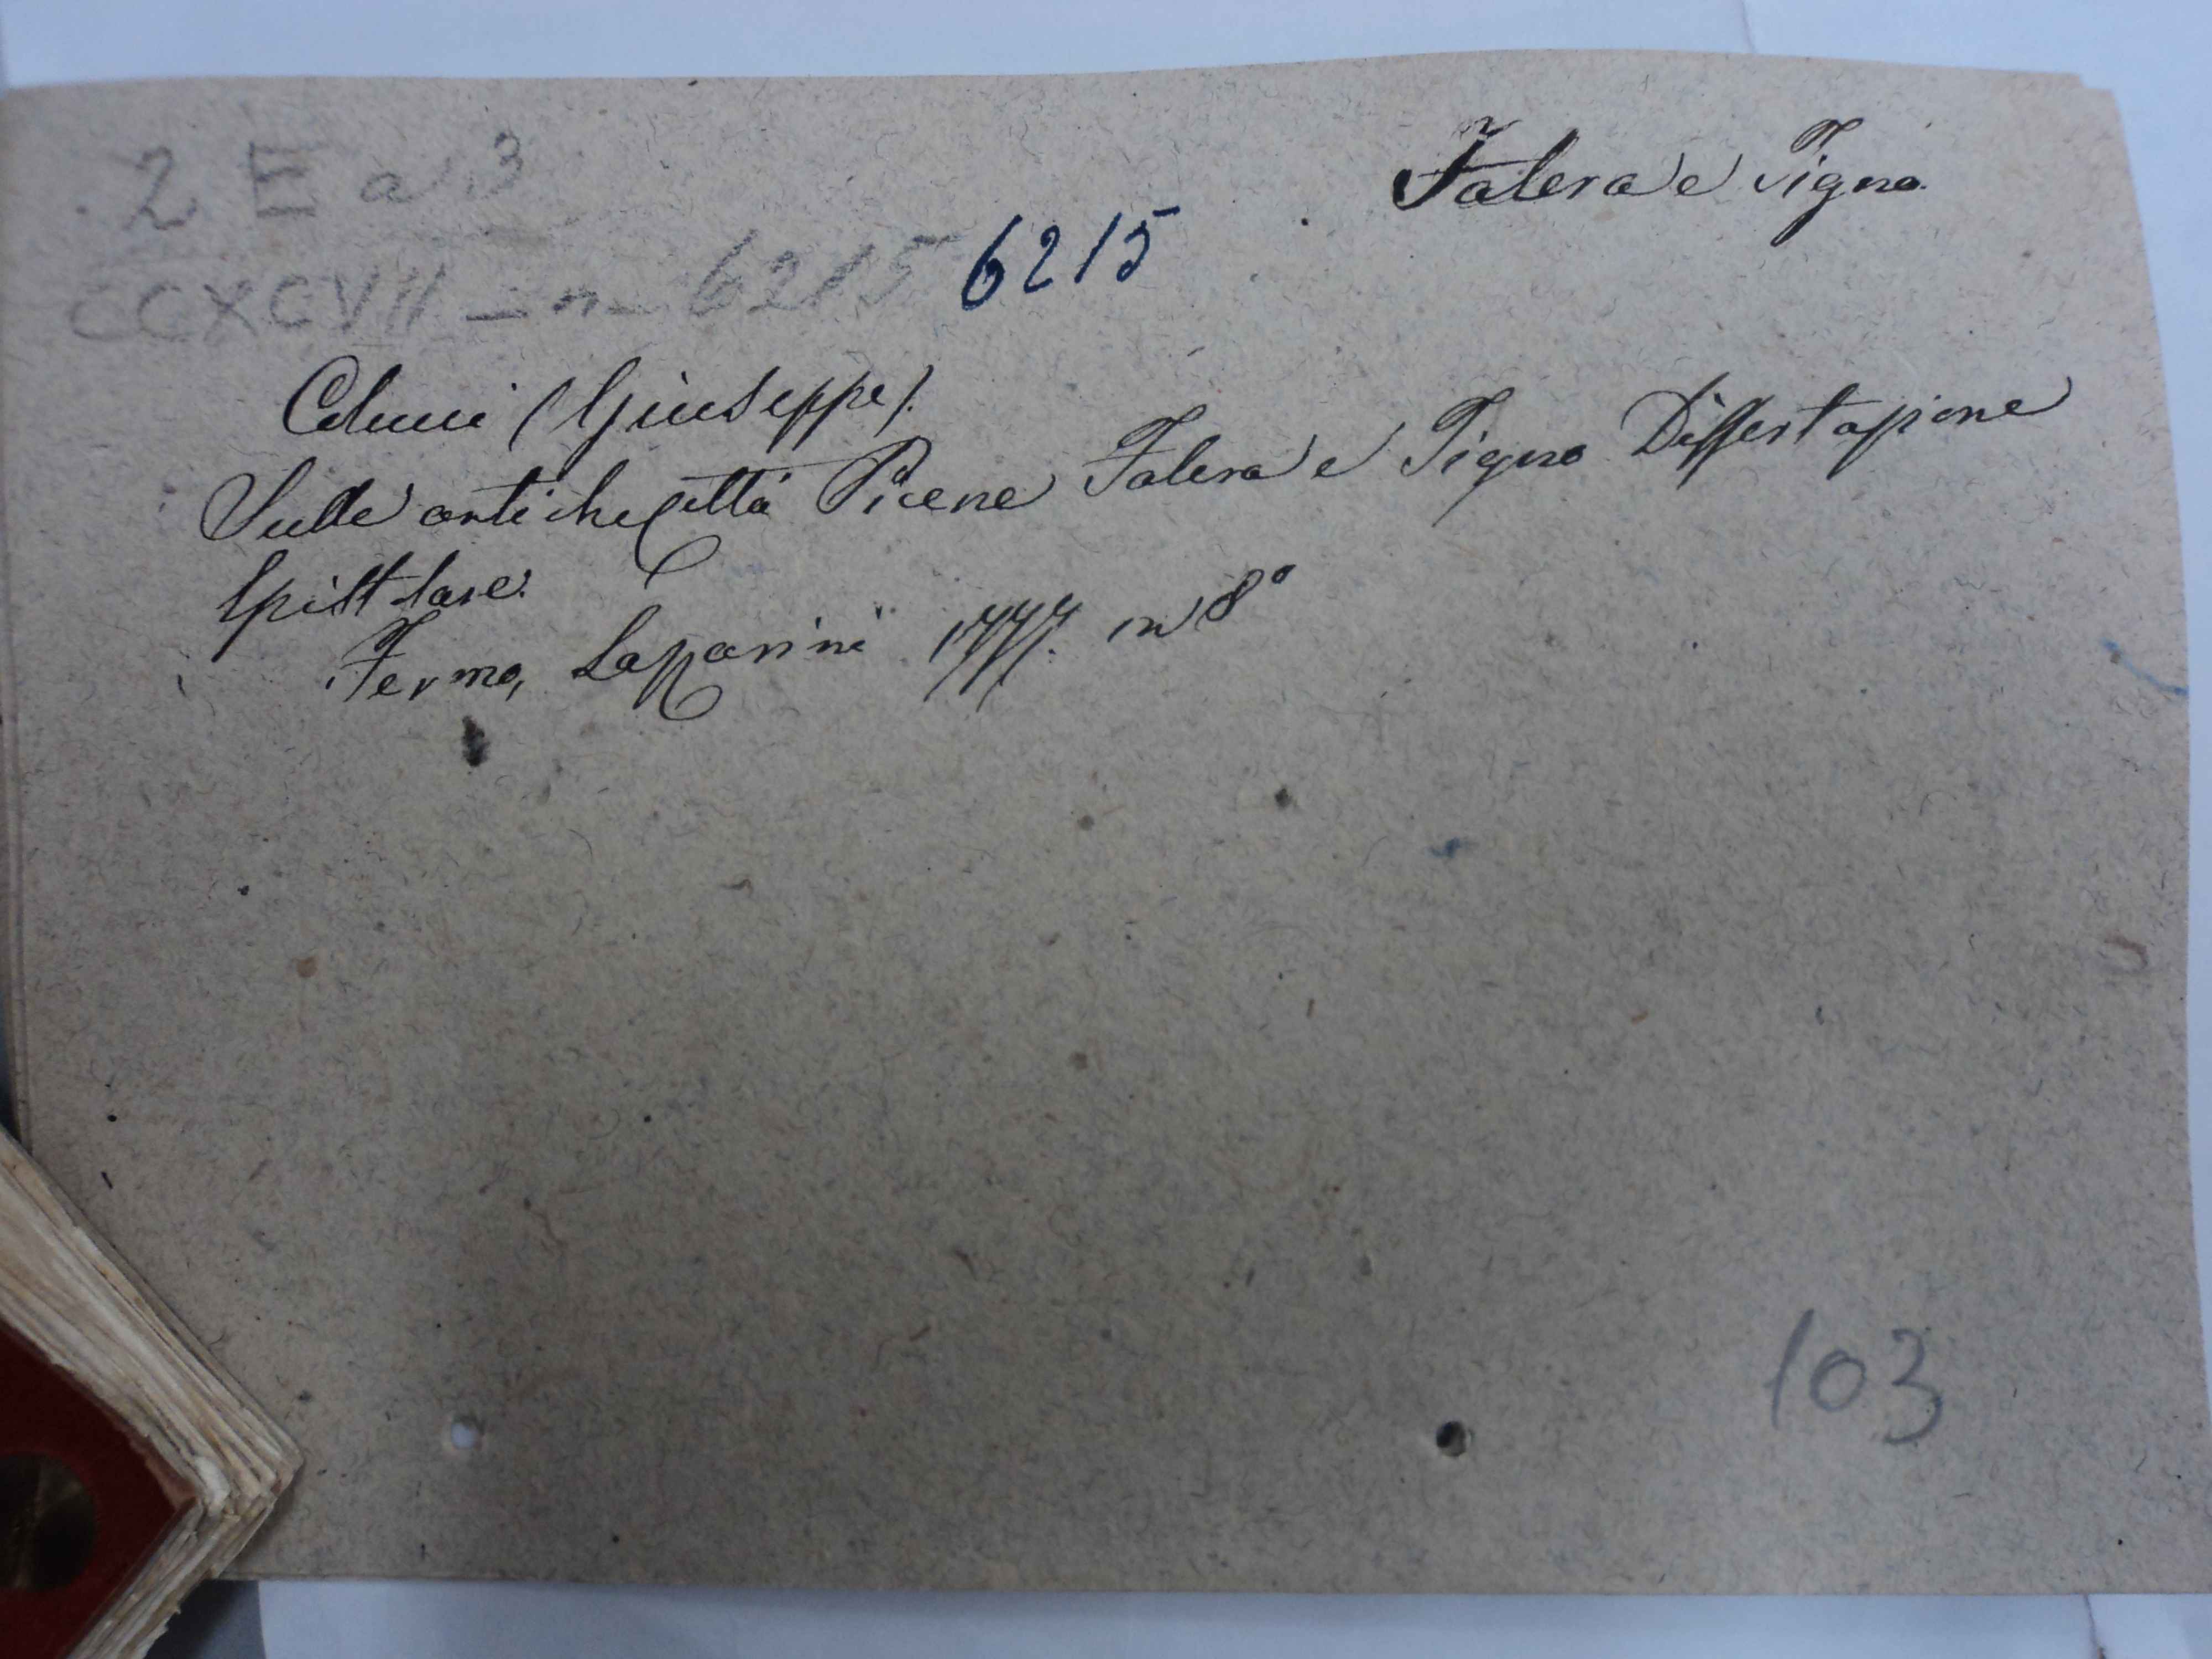 2 E a 3
Falera e Tigno.
CCXCVII - n - 6215 6215
Colucci (Giuseppe).
Sulle antiche città Picene Falera e Tigno Dissertazione
Epistolare.
Fermo, Lazzarini 1777. in 8°
103